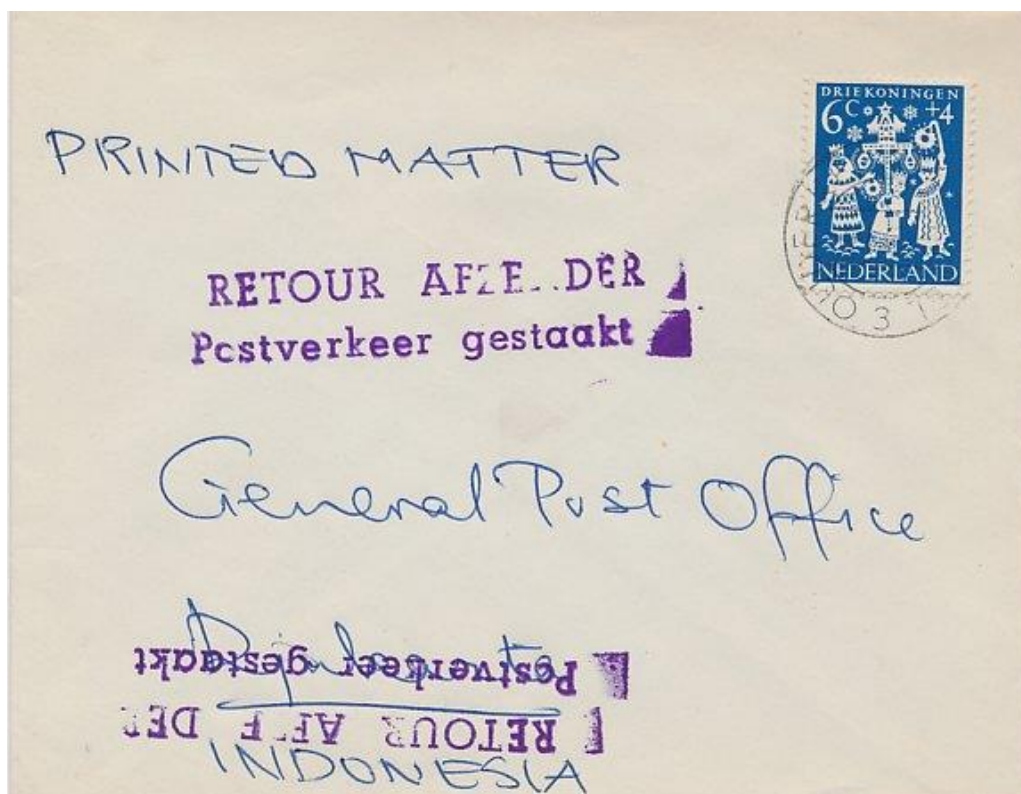 DRIEKONINGEN
6C +4
NEDERLAND
PRINTED MATTER
RETOUR AFZE DER
Postverkeer gestaakt
General Post Office
Djakarta
Postverkeer gestaakt
RETOUR AF E DER
INDONESIA